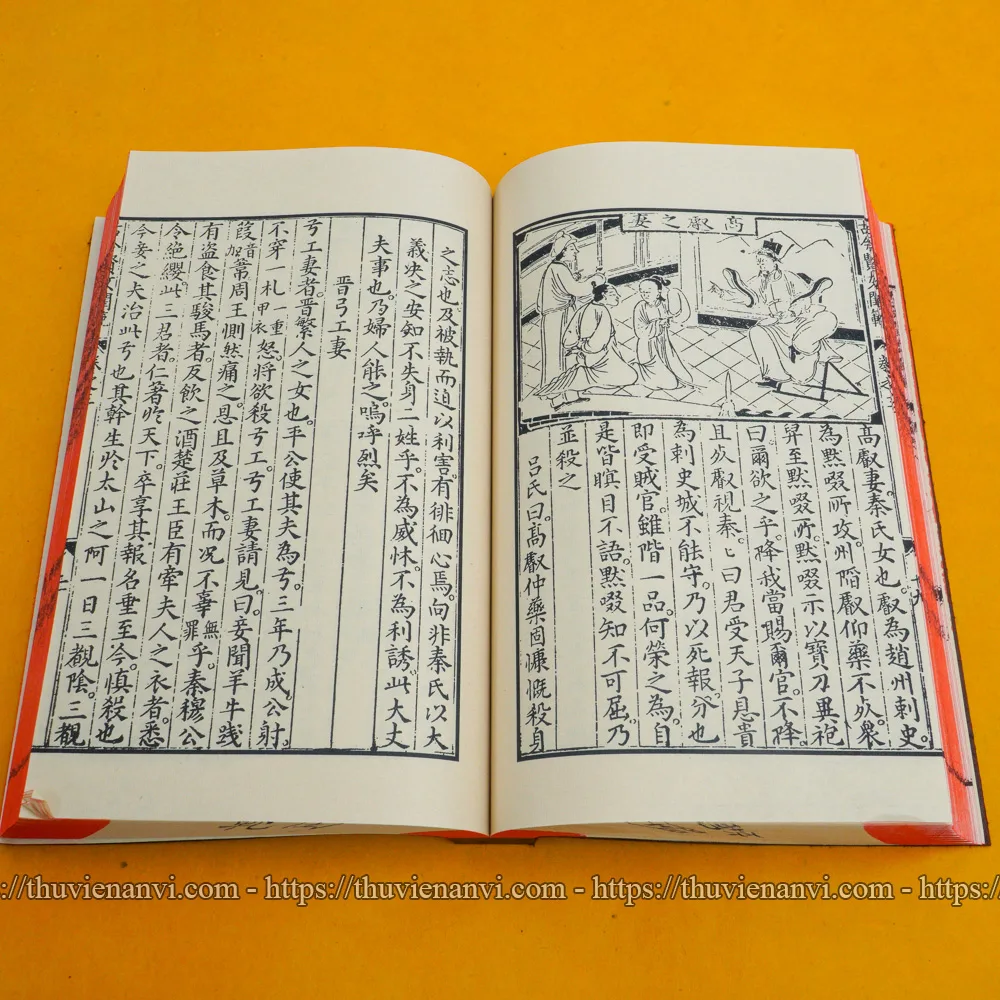 高叡之妻
高叡妻。秦氏女也。叡為趙州刺史。
為默啜所攻。州陷叡仰藥不死。衆
舁至默啜所。默啜示以寶刀異袍
曰爾欲之乎。降我當賜爾官。不降。
且死叡視秦。〻曰君受天子恩貴
為刺史城不能守。乃以死報。分也
即受賊官。雖階一品。何榮之為。自
是皆瞑目不語。默啜知不可屈。乃
並殺之
呂氏曰。高叡仰藥固慷慨殺身
之志也及被執而迫以利害。有徘徊心焉。向非秦氏以大
義決之安知不失身二姓乎。不為威怵。不為利誘。此大丈
夫事也。乃婦人能之。嗚呼烈矣
晋弓工妻
弓工妻者。晋繁人之女也。平公使其夫為弓。三年乃成。公射。
不穿一札甲衣一重怒。將欲殺弓工。弓工妻請見。曰。妾聞羊牛践
葭音加葦周王惻然痛之。恩且及草木。而况不辜無罪乎。秦穆公
有盗食其駿馬者。反飲之酒楚莊王臣有牽夫人之衣者。悉
令絶纓。此三君者。仁著於天下。卒享其報。名垂至今。慎殺也
今妾之夫治此弓也其幹生於太山之阿一日三覩陰。三覩
://thuvienanvi.com - https://thuvienanvi.com - https://thuvienanvi.com - https://